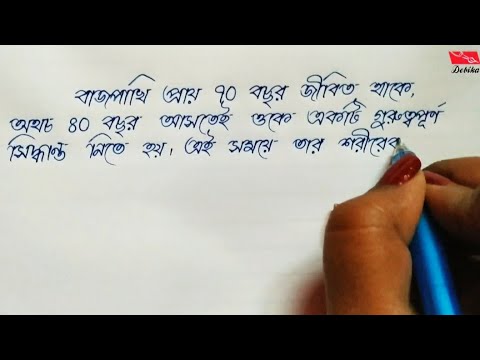 Debika
বাজপাখি প্রায় ৭0 বছর জীবিত থাকে,
অথচ 40 বছর আসতেই ওকে একটি গুরুত্বপূর্ণ
সিদ্ধান্ত নিতে হয়। এই সময়ে তার শরীরের